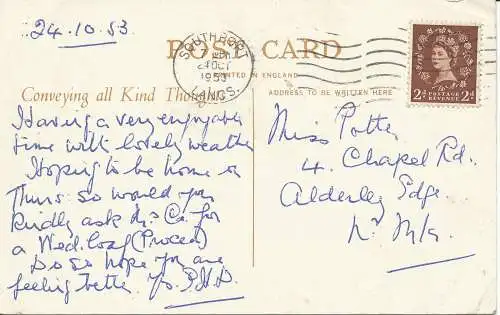 24.10.53
POST CARD
SOUTHPORT
24 OCT
1953
LANCS.
PRINTED IN ENGLAND
Conveying all Kind Thoughts
ADDRESS TO BE WRITTEN HERE
POSTAGE
REVENUE
2d 2d
Having a very enjoyable
time with lovely weather
Hoping to be home on
Thurs. so would you
kindly ask for
a Wed. loaf (Procea)
Do so hope you are
feeling better
Miss Potter
4 Chapel Rd.
Alderley Edge
Nr M/c